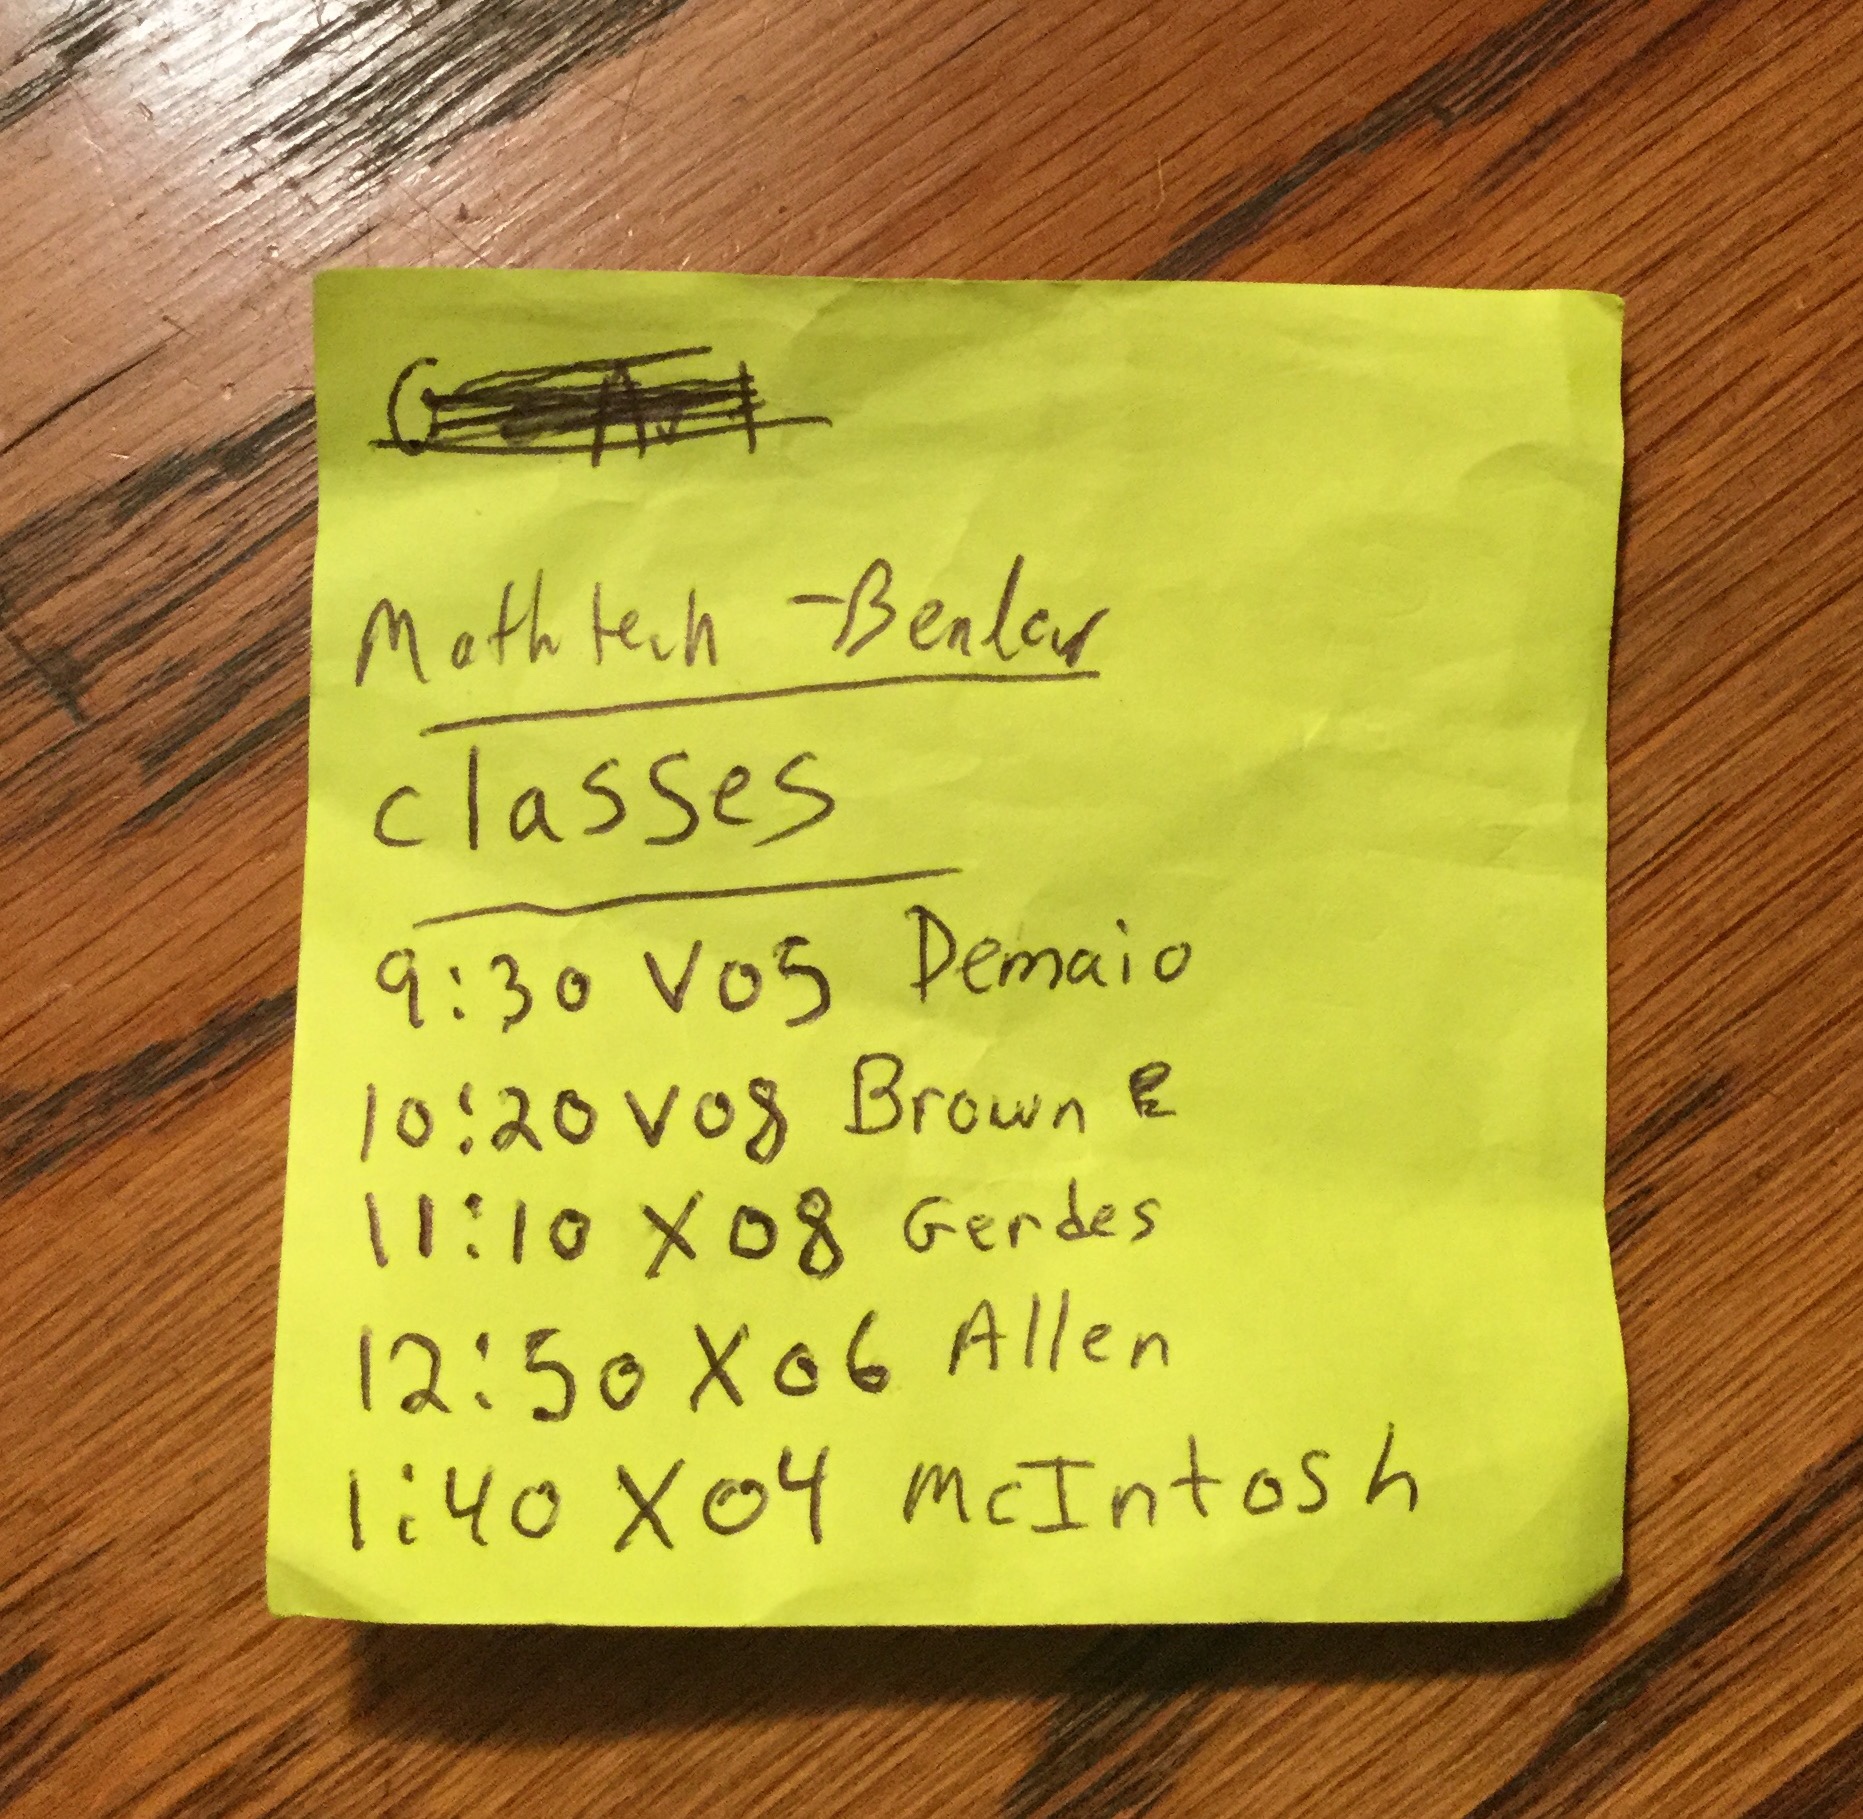 Mathtech -
classes
9:30 V05 Demaio
10:20 V08 Brown E
11:10 X08 Gerdes
12:50 X06 Allen
1:40 X04 McIntosh